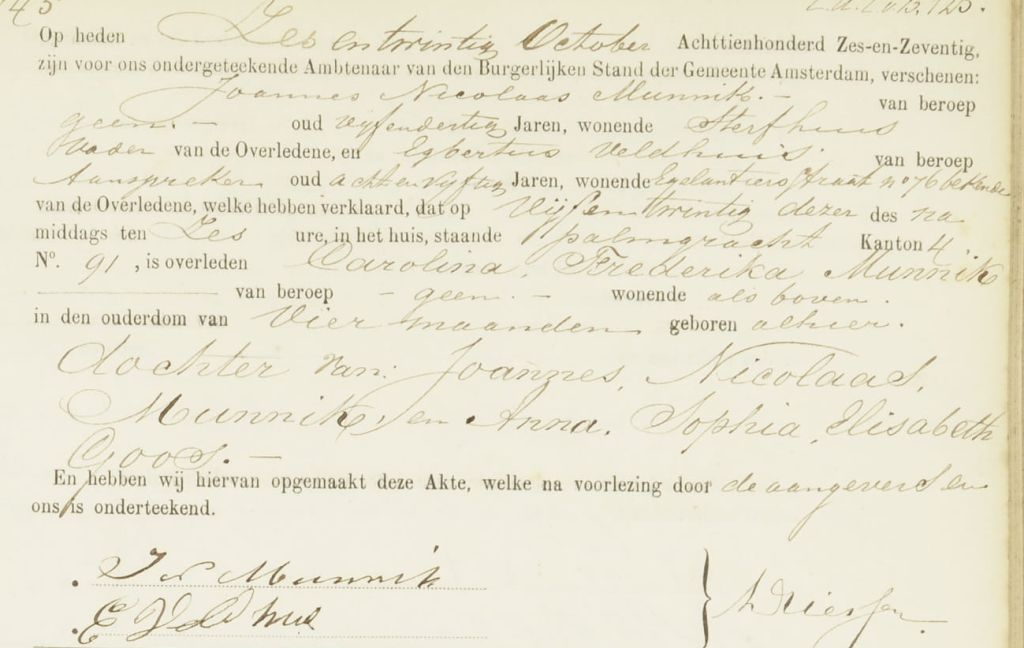 45
Op heden Zes en twintig October Achttienhonderd Zes-en-Zeventig,
zijn voor ons ondergeteekende Ambtenaar van den Burgerlijken Stand der Gemeente Amsterdam, verschenen:
Joannes Nicolaas Munnik. - van beroep
geen. - oud vijfendertig Jaren, wonende Sterfhuis
Vader van de Overledene, en Egbertus Veldhuis. van beroep
Aanspreker oud acht en vyftig Jaren, wonende Egelantiersstraat no 76 bekende
van de Overledene, welke hebben verklaard, dat op Vijf en twintig dezer des na
middags ten Zes ure, in het huis, staande palmgracht Kanton 4.
No. 91, is overleden Carolina, Frederika Munnik
van beroep - geen. - wonende als boven.
in den ouderdom van Vier maanden geboren alhier.
dochter van: Joannes, Nicolaas,
Munnik, en Anna, Sophia, Elisabeth
Goos. -
En hebben wij hiervan opgemaakt deze Akte, welke na voorlezing door de aangevers en
ons is onderteekend.
J N Munnik
E Veldhuis